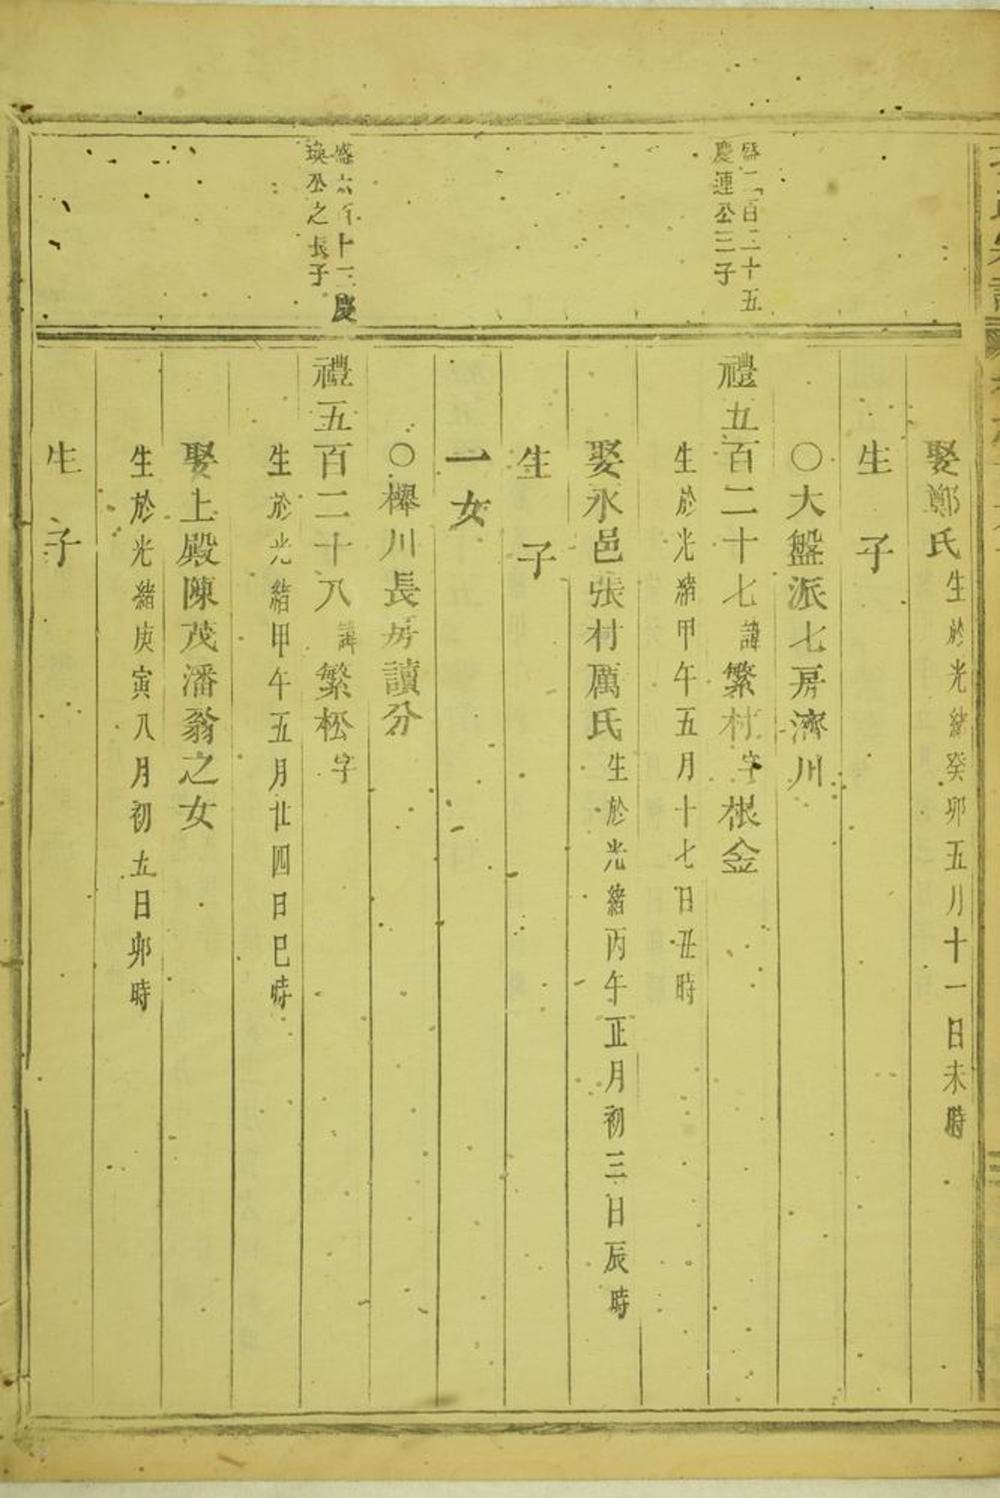 娶鄭氏生於光緒癸卯五月十一日未時
生子
〇大盤派七房濟川
盛二百二十五
慶連公三子
禮五百二十七諱繁村字根金
生於光緒甲午五月十七日丑時
娶永邑張村厲氏生於光緒丙午正月初三日辰時
生子
一女
〇櫸川長房讀分
盛六百十二慶
瑛公之長子
禮五百二十八諱繁松字
生於光緒甲午五月廿四日巳時
娶上殿陳茂潘翁之女
生於光緒庚寅八月初五日卯時
生子